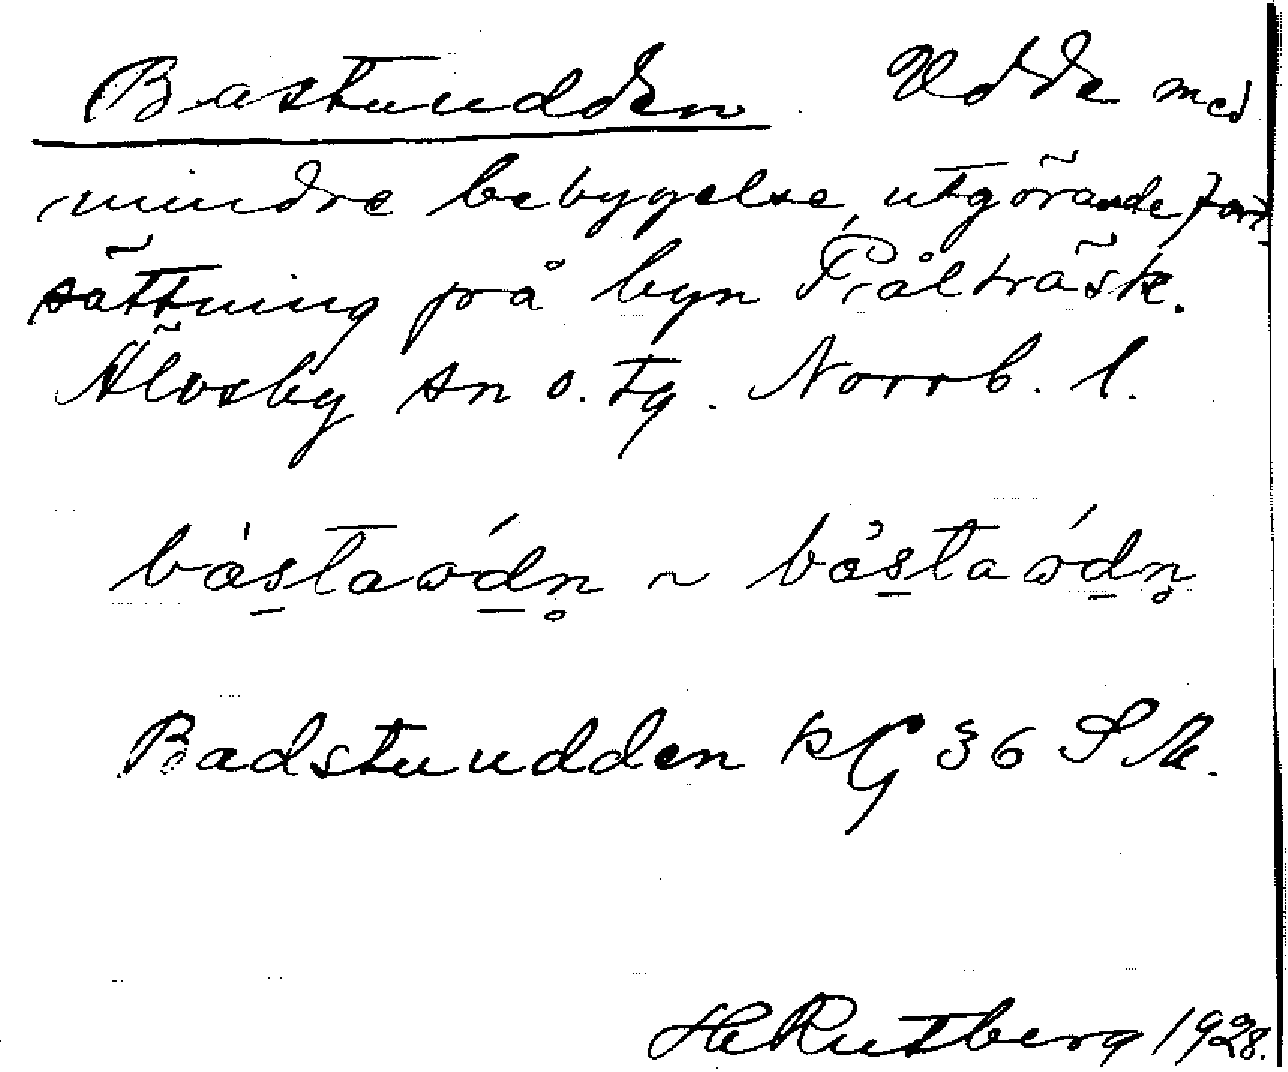 Bastuudden. Udde med
mindre bebygelse, utgörande fort-
sättning på byn Pålträsk.
Älvsby sn o. tg. Norrb. l.
bástawdn ~ bástawdn
Badstuudden kG 36 SM.
HRutberg 1928.